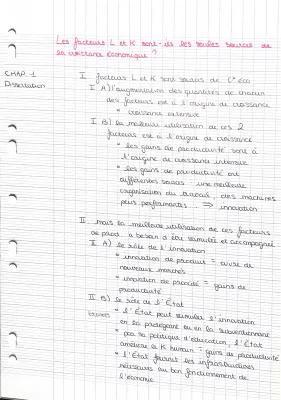 Les facteurs L et K sont-ils les seules sources de
la croissance économique ?
CHAP 1
Dissertation
I facteurs L et K sont sources de C° éco
I A) l'augmentation des quantités de chacun
des facteurs est à l'origine de croissance
= croissance extensive
I B) la meilleure utilisation de ces 2
facteurs est à l'origine de croissance
* les gains de productivité sont à
l'origine de croissance intensive
* les gains de productivité ont
différentes sources : une meilleure
organisation du travail, des machines
plus performantes ⇒ innovation
II mais la meilleure utilisation de ces facteurs
de prod. a besoin d'être stimulée et accompagnée
II A) le rôle de l'innovation
* innovation de produit =
nouveaux marchés
* innovation de procédé = gains de
productivité
II B) le rôle de l'État
* l'État peut stimuler l'innovation
en la protégeant ou en la subventionnant
* par sa politique d'éducation, l'État
améliore le K humain = gains de productivité
* l'État fournit les infrastructures
nécessaires au bon fonctionnement de
l'économie